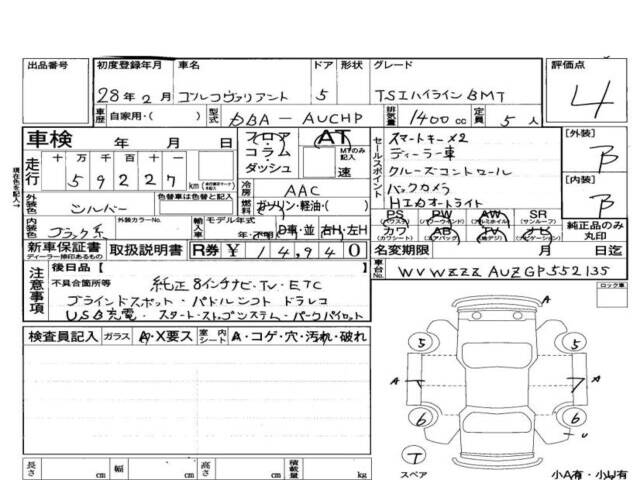 出品番号
初度登録年月 車名 ドア 形状 グレード 評価点
28年2月 ゴルフヴァリアント 5 TSIハイラインBMT 4
車歴 自家用・( ) 型式 DBA－AUCHP 排気量 1400cc 定員 5人
車検 年 月 日
フロア コラム ダッシュ AT MTのみ記入 速
セールスポイント
スマートキー×2
ディーラー車
クルーズコントロール
バックカメラ
HIDオートライト
[外装] B
[内装] B
現在色を記入→
走行 十 万 千 百 十 一
59227 km
冷房 AAC
外装色 シルバー 色替車は色替と記入
燃料 ガソリン・軽油・( )
内装色 ブラック系 外装カラーNo.
輸入車 モデル年式 年・不明 D車・並 右H・左H
PS (パワステ) PW (パワーウインド) AW (アルミホイル) SR (サンルーフ)
カワ (カワシート) AB (エアバッグ) TV (地デジ) ナビ (ナビゲーション)
純正品のみ丸印
新車保証書 ディーラー捺印あるもの 取扱説明書 R券 ¥14,940
名変期限 月 日迄
車台No. WVWZZZAUZGP552135
注意事項
後日品[ ]
不具合箇所等
純正8インチナビ・TV・ETC
ブラインドスポット・パドルシフト ドラレコ
USB充電・スタートストップシステム・パークパイロット
ロック車
検査員記入 ガラス A・X要ス 室内シート A・コゲ・穴・汚れ・破れ
A
5 5
A 7 A
6 6
U
T
スペア
小A有・小U有
長さ cm 幅 cm 高さ cm 積載量 kg